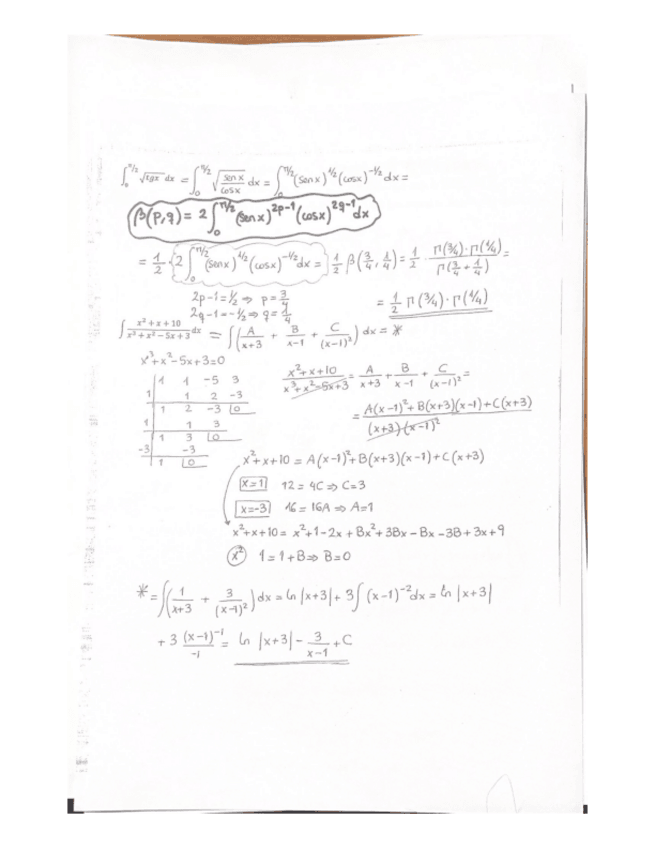 1
∫₀^{π/2} √tgx dx = ∫₀^{π/2} √(senx/cosx) dx = ∫₀^{π/2} (senx)^{1/2} (cosx)^{-1/2} dx =
β(p,q) = 2∫₀^{π/2} (senx)^{2p-1} (cosx)^{2q-1} dx
= 1/2 · 2∫₀^{π/2} (senx)^{1/2} (cosx)^{-1/2} dx = 1/2 β(3/4, 1/4) = 1/2 · Γ(3/4)·Γ(1/4) / Γ(3/4 + 1/4) =
2p-1 = 1/2 ⇒ p = 3/4
2q-1 = -1/2 ⇒ q = 1/4
= 1/2 Γ(3/4)·Γ(1/4)
∫ (x²+x+10)/(x³+x²-5x+3) dx = ∫ (A/(x+3) + B/(x-1) + C/(x-1)²) dx = *
x³+x²-5x+3=0
1 1 -5 3
1 1 2 -3
1 2 -3 0
1 1 3
1 3 0
-3 -3
1 0
(x²+x+10)/(x³+x²-5x+3) = A/(x+3) + B/(x-1) + C/(x-1)² =
= (A(x-1)²+B(x+3)(x-1)+C(x+3))/((x+3)(x-1)²)
x²+x+10 = A(x-1)²+B(x+3)(x-1)+C(x+3)
x=1 12 = 4C ⇒ C=3
x=-3 16 = 16A ⇒ A=1
x²+x+10 = x²+1-2x+Bx²+3Bx-Bx-3B+3x+9
x² 1=1+B ⇒ B=0
* = ∫(1/(x+3) + 3/(x-1)²) dx = ln|x+3| + 3∫(x-1)^{-2} dx = ln|x+3|
+ 3 (x-1)^{-1}/-1 = ln|x+3| - 3/(x-1) + C